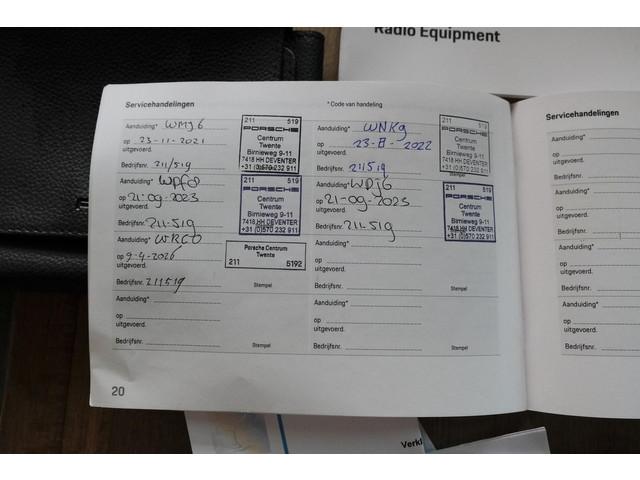 Radio Equipment
Servicehandelingen
* Code van handeling
Aanduiding* WMJ6
op 23-11-2021
uitgevoerd.
Bedrijfsnr. 211519
211 519
PORSCHE
Centrum
Twente
Birnieweg 9-11
7418 HH DEVENTER
+31 (0)570 232 911
Aanduiding* WNK9
op 23-8-2022
uitgevoerd.
Bedrijfsnr. 211519
211 519
PORSCHE
Centrum
Twente
Birnieweg 9-11
7418 HH DEVENTER
+31 (0)570 232 911
Aanduiding*
op 21-09-2023
uitgevoerd.
Bedrijfsnr. 211-519
211 519
PORSCHE
Centrum
Twente
Birnieweg 9-11
7418 HH DEVENTER
+31 (0)570 232 911
Aanduiding* WPJ6
op 21-09-2023
uitgevoerd.
Bedrijfsnr. 211-519
211 519
PORSCHE
Centrum
Twente
Birnieweg 9-11
7418 HH DEVENTER
+31 (0)570 232 911
Aanduiding* WRC0
op 9-4-2026
uitgevoerd.
Bedrijfsnr. 211519
Stempel
Porsche Centrum
Twente
211 5192
Aanduiding*
op
uitgevoerd.
Bedrijfsnr.
Stempel
Aanduiding*
op
uitgevoerd.
Bedrijfsnr.
Stempel
Aanduiding*
op
uitgevoerd.
Bedrijfsnr.
Stempel
20
Servicehandelingen
Aanduiding*
op
uitgevoerd.
Bedrijfsnr.
Aanduiding*
op
uitgevoerd.
Bedrijfsnr.
Aanduiding*
op
uitgevoerd.
Bedrijfsnr.
Aanduiding*
op
uitgevoerd.
Bedrijfsnr.